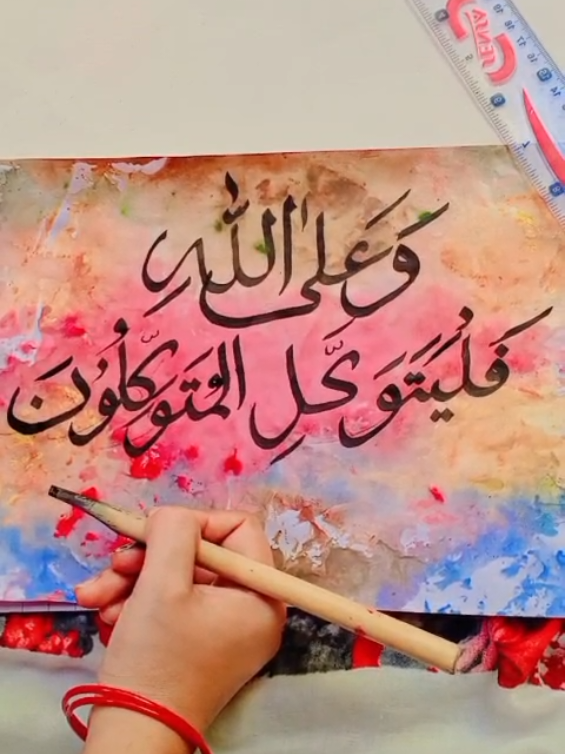 وَعَلَى اللّٰهِ
فَلْيَتَوَكَّلِ الْمُتَوَكِّلُونَ